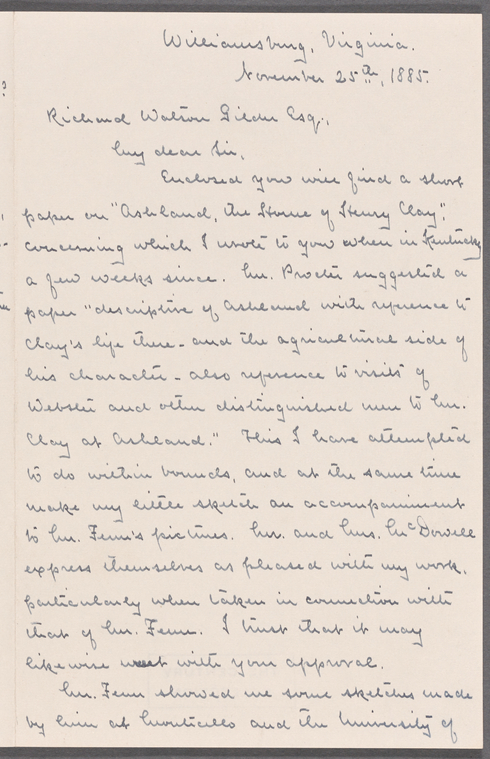 Williamsburg, Virginia.
November 25th, 1885.
Richard Watson Gilder Esq.,
My dear Sir,
Enclosed you will find a short
paper on "Ashland, the Home of Henry Clay",
concerning which I wrote to you when in Kentucky
a few weeks since. Mr. Procter suggested a
paper "descriptive of Ashland with reference to
Clay's life there - and the agricultural side of
his character - also reference to visits of
Webster and other distinguished men to Mr.
Clay at Ashland." This I have attempted
to do within bounds, and at the same time
make my little sketch an accompaniment
to Mr. Fenn's pictures. Mr. and Mrs. McDowell
express themselves as pleased with my work,
particularly when taken in connection with
that of Mr. Fenn. I trust that it may
likewise meet with your approval.
Mr. Fenn showed me some sketches made
by him at Monticello and the University of